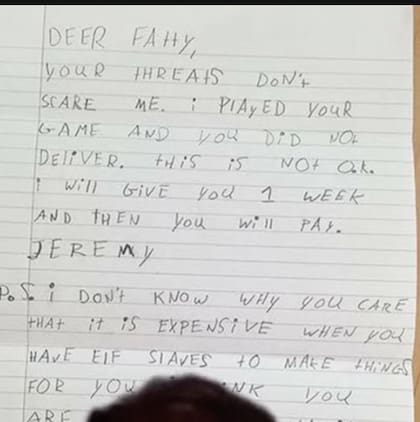 DEER FAHY,
YOUR THREATS DON't
SCARE ME. i PlAYED YOUR
GAME AND YOU DiD NOt
DEliVER. tHiS iS NOt O.k.
i Will GiVE YOU 1 WEEK
AND tHEN YOU Will PAY.
JEREMY
P.S. i DON't KNOW WHY YOU CARE
tHAt it iS EXPENSiVE WHEN YOU
HAVE ElF SlAVES tO MAkE tHiNGS
FOR YOU NK YOU
ARE